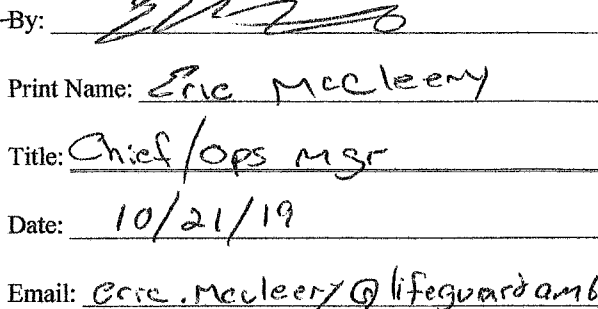 By:
Print Name: Eric McCleery
Title: Chief/Ops Mgr
Date: 10/21/19
Email: eric.mccleery@lifeguardamb